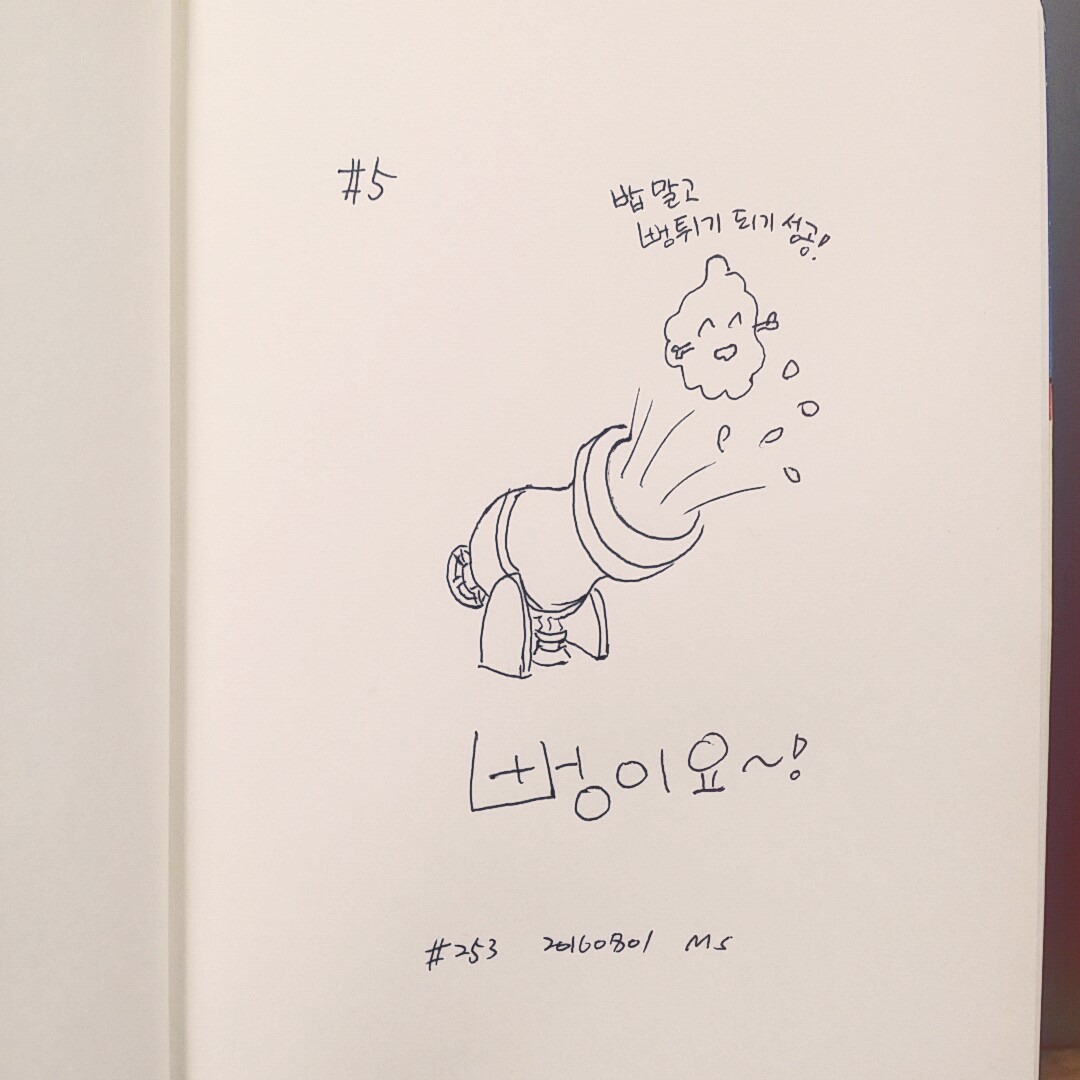 #5
밥 말고
뻥튀기 되기 성공!
뻥이요~!
#253 20160801 MS